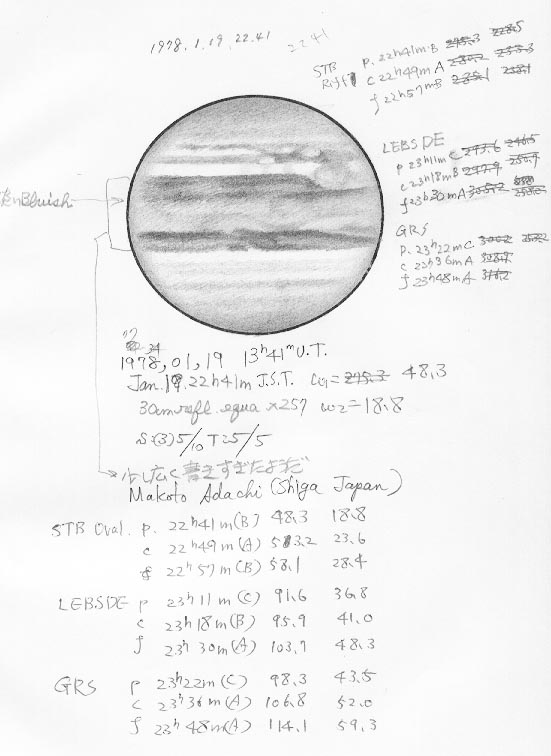 1978.1.19.22.41
22 41
STB
P. 22h41m B 295.3 228.5
c 22h49m A
f 22h57m B
LEBSDE
P 23h11m C 273.6 246.5
c 23h18m B 247.9
f 23h30m A
GRS
P. 23h22m C
c 23h36m A
f 23h48m A
Bluish
34
1978, 01, 19 13h41m U.T.
Jan. 19. 22h41m J.S.T. ω1= 295.3 48.3
30cm refl. equa ×257 ω2=18.8
S:(3)5/10 T:5/5
少し広く書きすぎたようだ
Makoto Adachi (Shiga Japan)
STB Oval. P. 22h41m(B) 48.3 18.8
c 22h49m(A) 53.2 23.6
f 22h57m(B) 58.1 28.4
LEBSDE P 23h11m(C) 91.6 36.8
c 23h18m(B) 95.9 41.0
f 23h30m(A) 103.7 48.3
GRS P 23h22m(C) 98.3 43.5
c 23h36m(A) 106.8 52.0
f 23h48m(A) 114.1 59.3